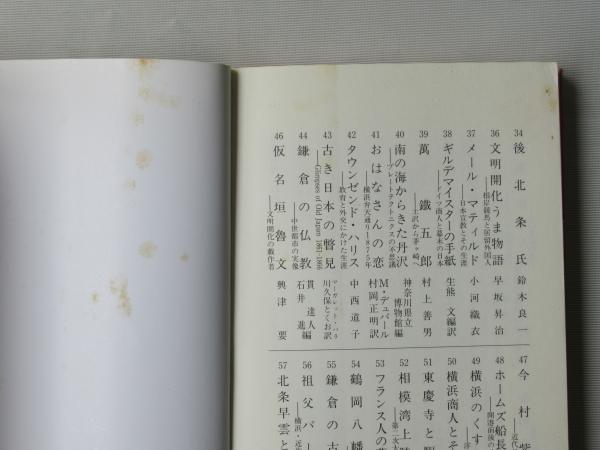 34 後北条氏 鈴木良一
36 文明開化うま物語 早坂昇治
──根岸競馬と居留外国人
37 メール・マティルド 小河織衣
──日本宣教とその生涯
38 ギルデマイスターの手紙 生熊 文編訳
──ドイツ商人と幕末の日本
39 萬鐵五郎 村上善男
──土沢から茅ヶ崎へ
40 南の海からきた丹沢 神奈川県立博物館編
──プレートテクトニクスの不思議
41 おはなさんの恋 M・デュバール 村岡正明訳
──横浜弁天通り1875年
42 タウンゼンド・ハリス 中西道子
──教育と外交にかけた生涯
43 古き日本の瞥見 マーガレット・バラ 川久保とくお訳
──Glimpses of Old Japan 1861-1866
44 鎌倉の仏教 貫 達人編 石井 進
──中世都市の実像
46 仮名垣魯文 興津 要
──文明開化の戯作者
47 今村紫
──近代
48 ホームズ船長
──開港前後の
49 横浜のくす
50 横浜商人とそ
51 東慶寺と
52 相模湾上陸
──第二次大
53 フランス人の
54 鶴岡八幡
55 鎌倉の古
56 祖父パー
──横浜・近
57 北条早雲と